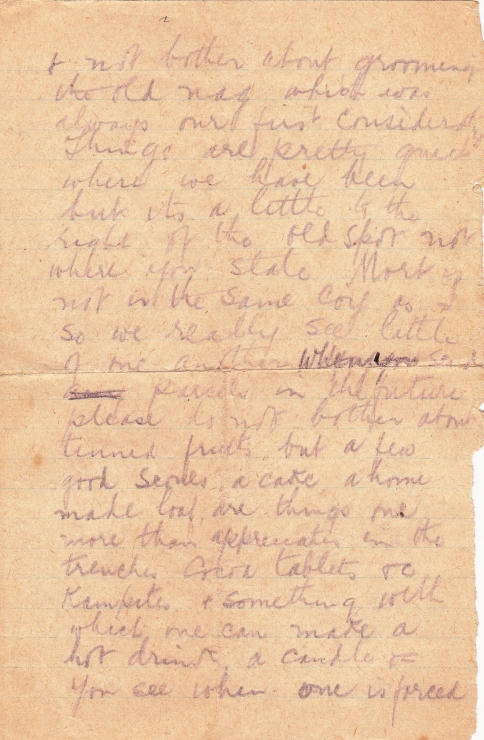 & not bother about grooming
the old nag which was
always our first considerat
Things are pretty quiet
where we have been
but its a little to the
right of the old spot not
where you state Mort is
not in the same Coy as I
so we really see little
of one another When you send
parcels in the future
please do not bother about
tinned fruits but a few
good scones, a cake a home
made loaf, are things one
more than appreciates in the
trenches Cocoa tablets or
Kampites & something with
which one can make a
hot drink, a candle
You see when one is forced